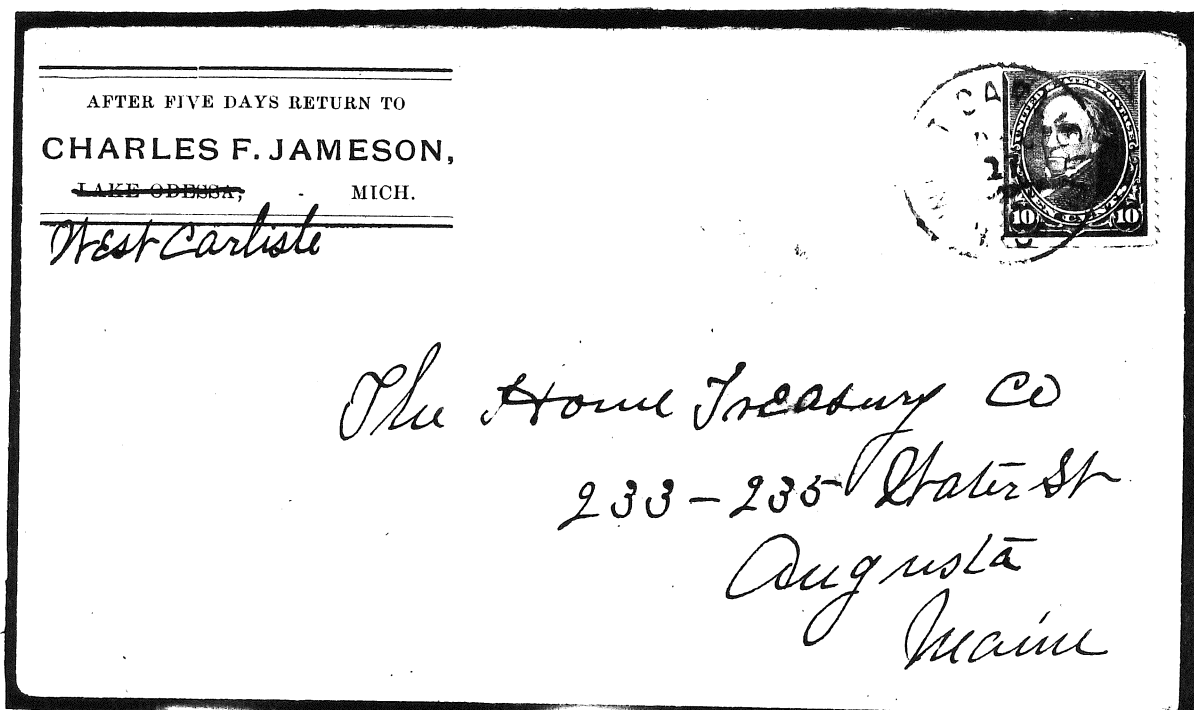 AFTER FIVE DAYS RETURN TO
CHARLES F. JAMESON,
LAKE ODESSA, - MICH.
West Carlisle
T CAR
UNITED STATES POSTAGE
TEN CENTS
10 10
The Home Treasury Co
233-235 Water St
Augusta
Maine